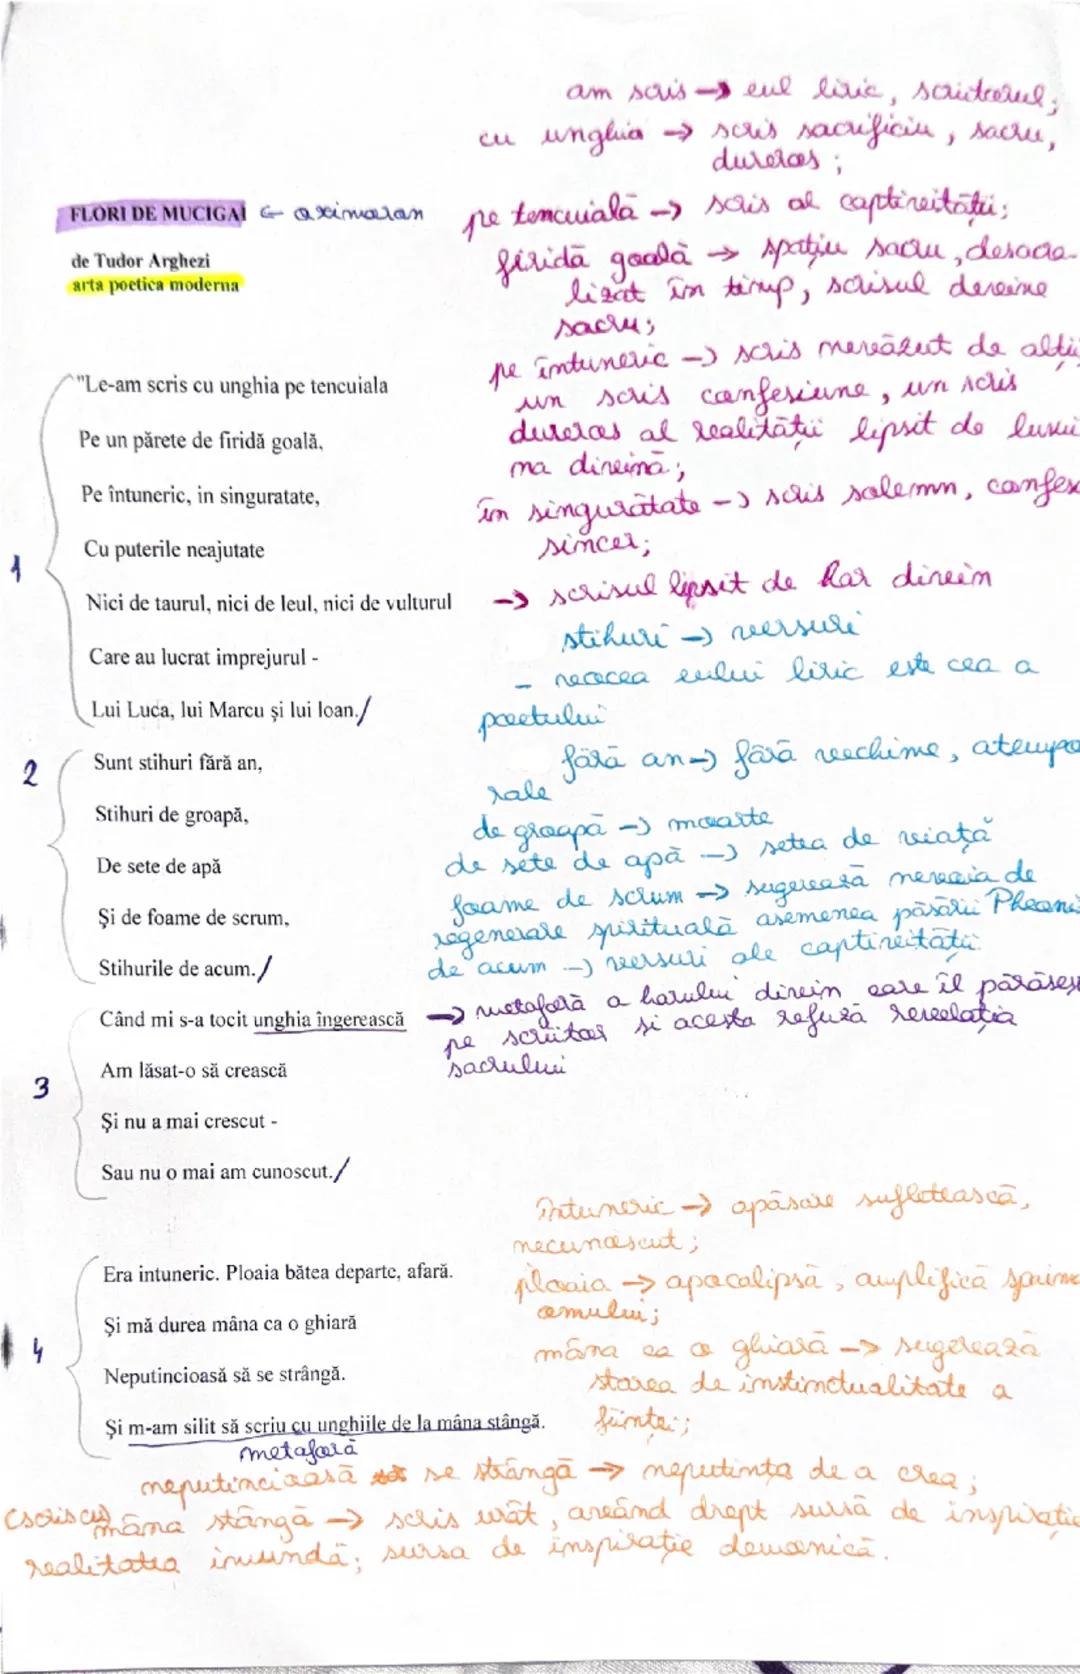 am scris → eul liric, scriitorul;
cu unghia → scris sacrificiu, sacru,
dureros;
FLORI DE MUCIGAI ← oximoron
pe tencuială → scris al captivității;
de Tudor Arghezi
arta poetica moderna
firidă goală → spațiu sacru, desacra-
lizat în timp, scrisul devine
sacru;
pe întuneric → scris nevăzut de alții
un scris confesiune, un scris
dureros al realității lipsit de lumi
na divină;
în singurătate → scris solemn, confes
sincer;
1
"Le-am scris cu unghia pe tencuiala
Pe un părete de firidă goală,
Pe întuneric, in singuratate,
Cu puterile neajutate
Nici de taurul, nici de leul, nici de vulturul → scrisul lipsit de har divin
Care au lucrat imprejurul -
Lui Luca, lui Marcu și lui Ioan./
stihuri → versuri
- vocea eului liric este cea a
poetului
2
Sunt stihuri fără an,
Stihuri de groapă,
De sete de apă
Și de foame de scrum,
Stihurile de acum./
fără an → fără vechime, atempo
rale
de groapă → moarte
de sete de apă → setea de viață
foame de scrum → sugerează nevoia de
regenerare spirituală asemenea păsării Phoenix
de acum → versuri ale captivității
3
Când mi s-a tocit unghia îngerească → metaforă a harului divin care îl părăseș
pe scriitor și acesta refuză revelația
sacrului
Am lăsat-o să crească
Și nu a mai crescut -
Sau nu o mai am cunoscut./
Întuneric → apăsare sufletească,
necunoscut;
ploaia → apocalipsă, amplifică spaima
omului;
mâna ca o ghiară → sugerează
starea de instinctualitate a
ființei;
4
Era intuneric. Ploaia bătea departe, afară.
Și mă durea mâna ca o ghiară
Neputincioasă să se strângă.
Și m-am silit să scriu cu unghiile de la mâna stângă.
metaforă
neputincioasă se strângă → neputința de a crea;
(scris cu) mâna stângă → scris urât, având drept sursă de inspirație
realitatea imundă; sursa de inspirație demonică.